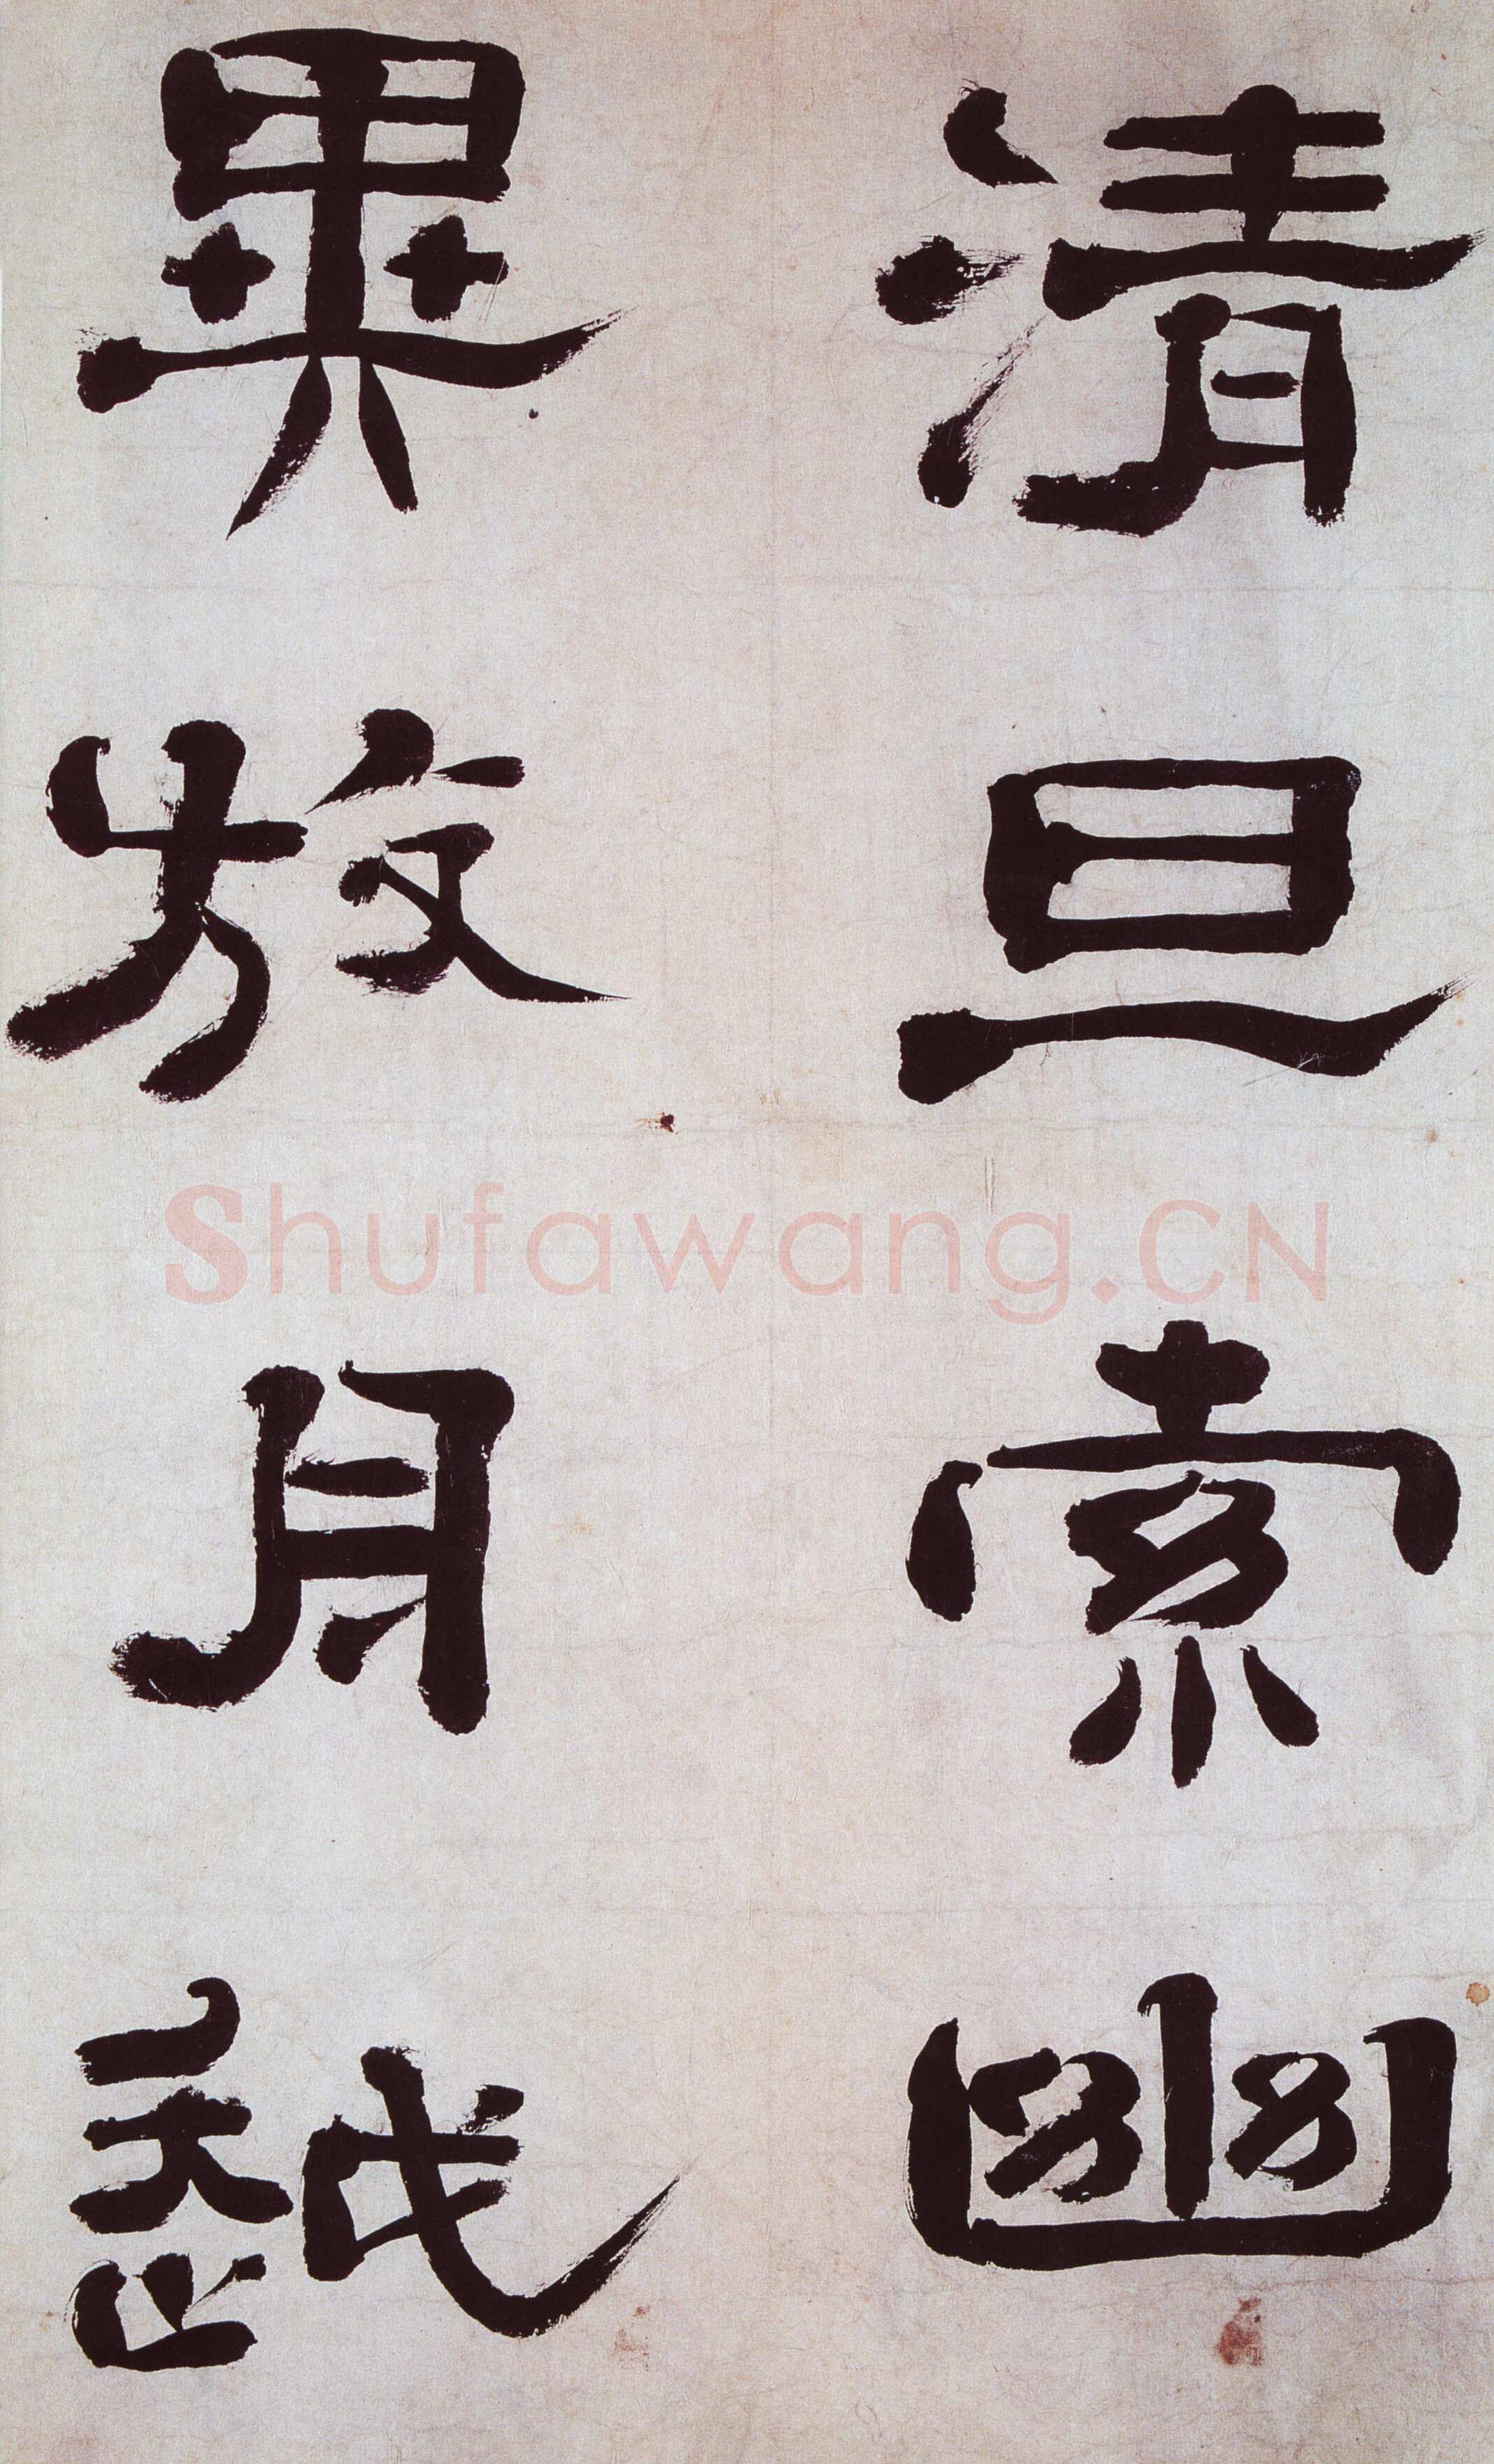 清旦索幽
異放舟越
Shufawang.CN